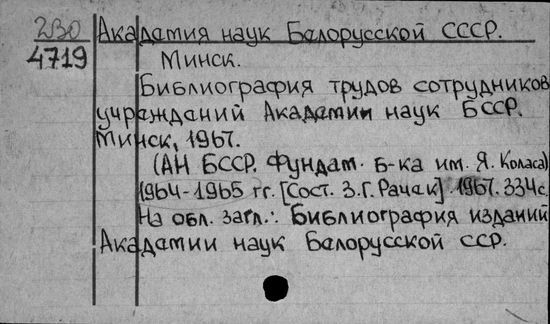 2Э0 Академия наук Белорусской СССР.
4719 Минск.
Библиография трудов сотрудников
учреждений Академии наук БССР.
Минск, 1967.
(АН БССР. Фундам. б-ка им. Я. Коласа)
1964-1965 гг. [Сост. З.Г. Рачак]. 1967. 334с.
На обл. загл.: Библиография изданий
Академии наук Белорусской ССР.